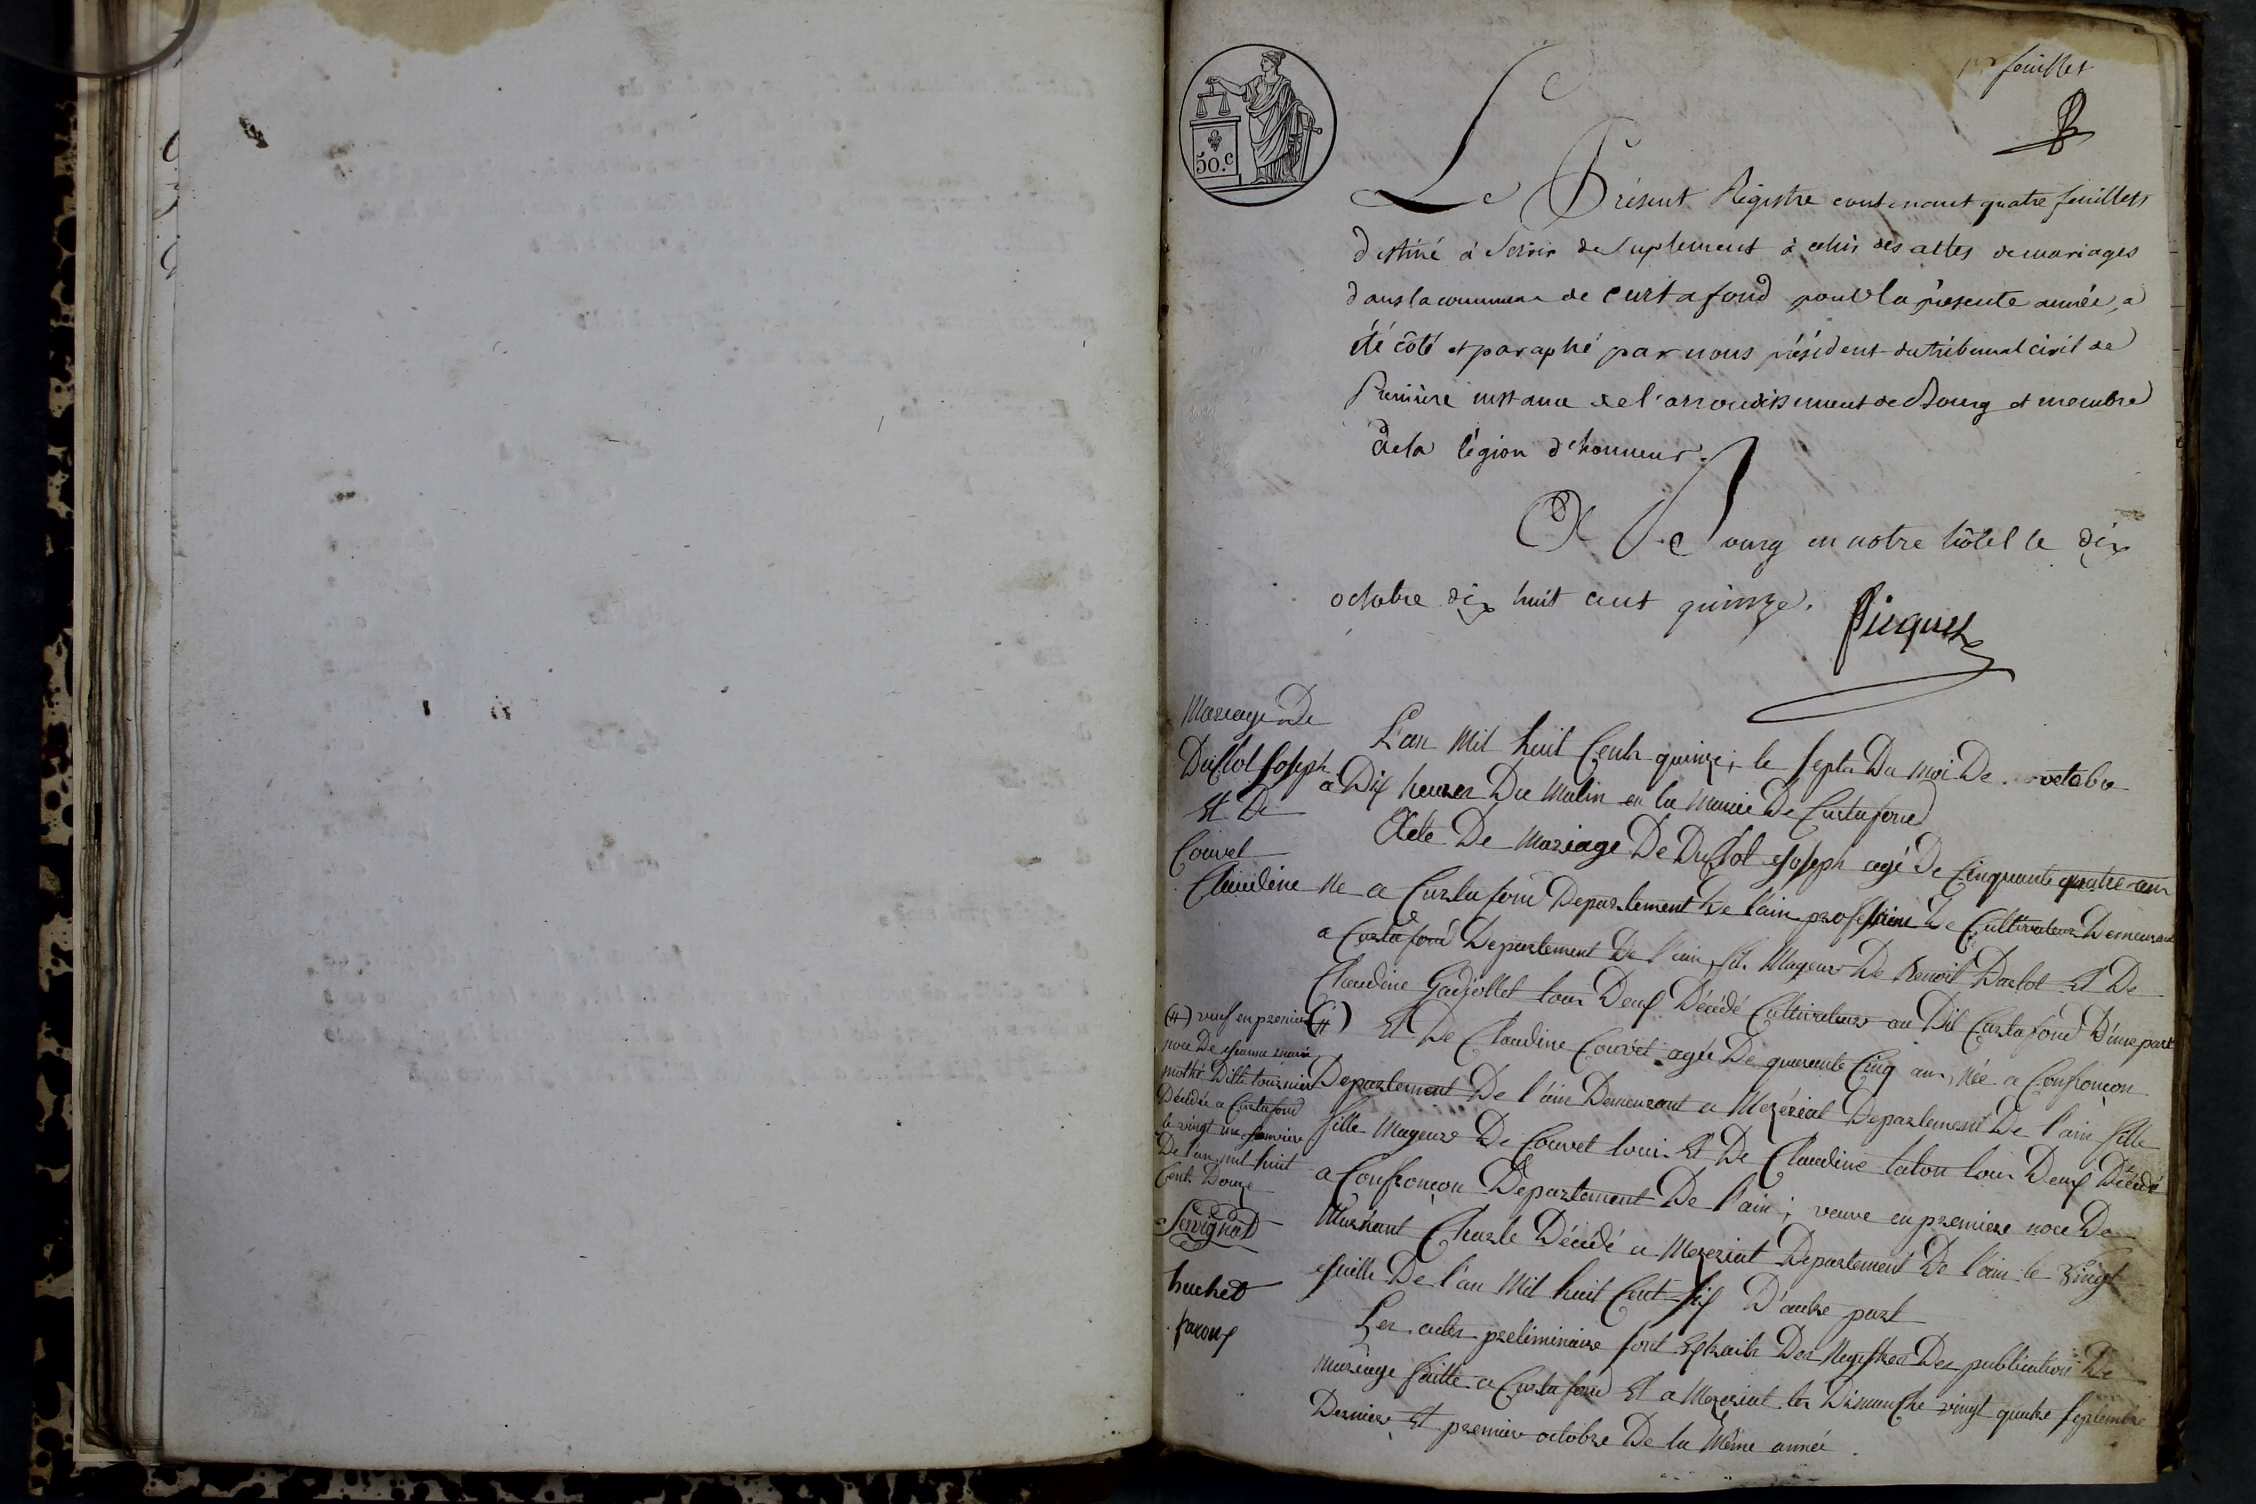 1er feuillet
50.c
Le Présent Registre contenant quatre feuillets
destiné à servir de suplement à celui des actes de mariages
dans la commune de Curtafond pour la présente année, a
été côté et paraphé par nous président du tribunal civil de
Première instance de l'arrondissement de Bourg et membre
de la légion d'honneur.
A Bourg en notre hôtel le dix
octobre dix huit cent quinze.
Picquet
Mariage De
Duclot Joseph
Et De
Couvet
Claudine
L'an Mil huit Cents quinze, le sept Du moi De octobre
a Dix heures Du Matin en la Mairie De Curtafond
Acte De Mariage De Duclot Joseph agé De Cinquante quatre ans
Né a Curtafond Departement De l'ain profession De Cultivateur Demeurant
a Curtafond Departement De l'ain, fils Mageur De Benoit Duclot Et De
Claudine Gadiollet tous Deux Décédé Cultivateurs au Dit Curtafond D'une part
(#) Et De Claudine Couvet agée De quarente Cinq ans, Née a Confrançon
Departement De l'ain Demeurant a Mezériat Departement De l'ain fille
fille Mageure De Couvet louis Et De Claudine laton tous Deux Décédé
a Confrançon Departement De l'ain; veuve en premiere noce De
Charle Décédé a Mezeriat Departement De l'ain le Vingt
Juille De l'an Mil huit Cent Six D'autre part
Les actes preliminaire sont Extraits Des Registres Des publications De
Mariage faitte a Curtafond Et a Mezeriat les Dimanche vingt quatre septembre
Dernier Et premier octobre De la Même année.
(#) veuf en premiere
noce De Jeanne marie
Ditte tournier
Décédée a Curtafond
le vingt un Janvier
De l'an mil huit
Cents Douze
Servignat
huchet